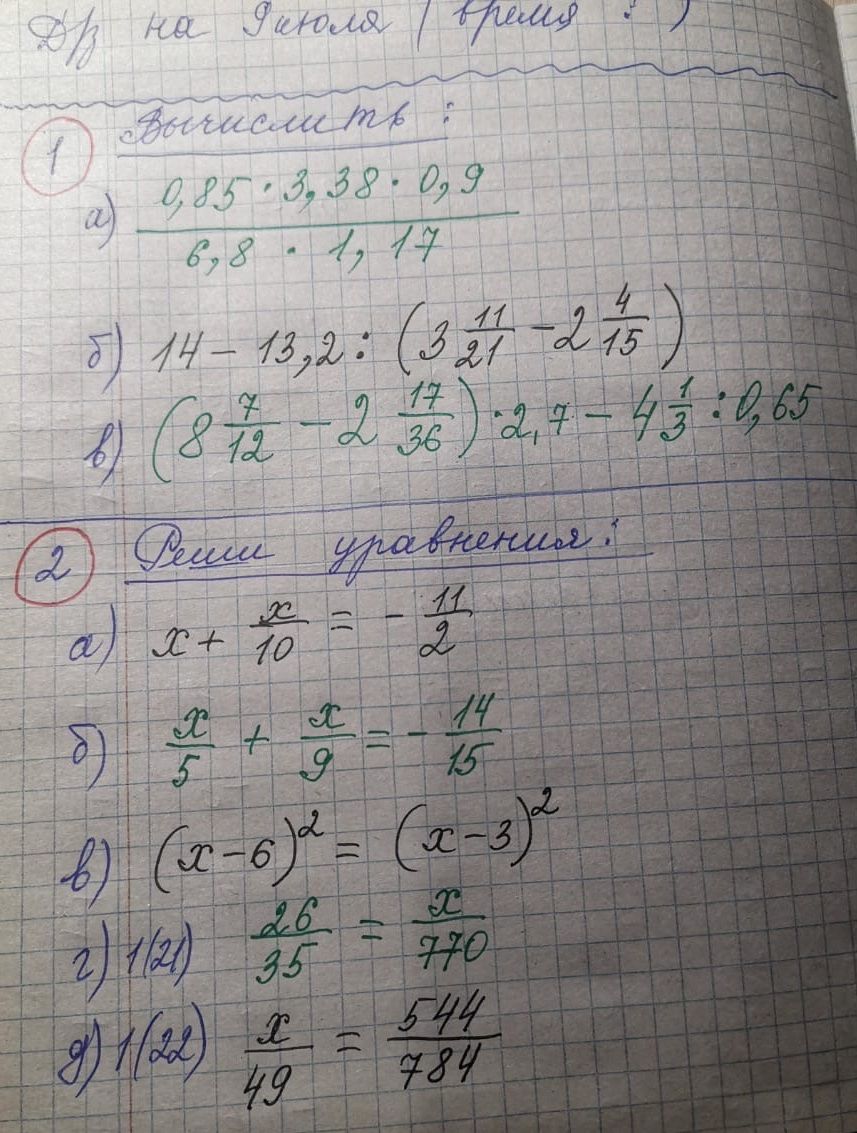 Д/з на 9 июля (время : )
1 Вычислить:
а) (0,85 · 3,38 · 0,9)/(6,8 · 1,17)
б) 14 - 13,2 : (3 11/21 - 2 4/15)
в) (8 7/12 - 2 17/36) · 2,7 - 4 1/3 : 0,65
2 Реши уравнения:
а) x + x/10 = - 11/2
б) x/5 + x/9 = - 14/15
в) (x - 6)² = (x - 3)²
г) 1(21) 26/35 = x/770
д) 1(22) x/49 = 544/784